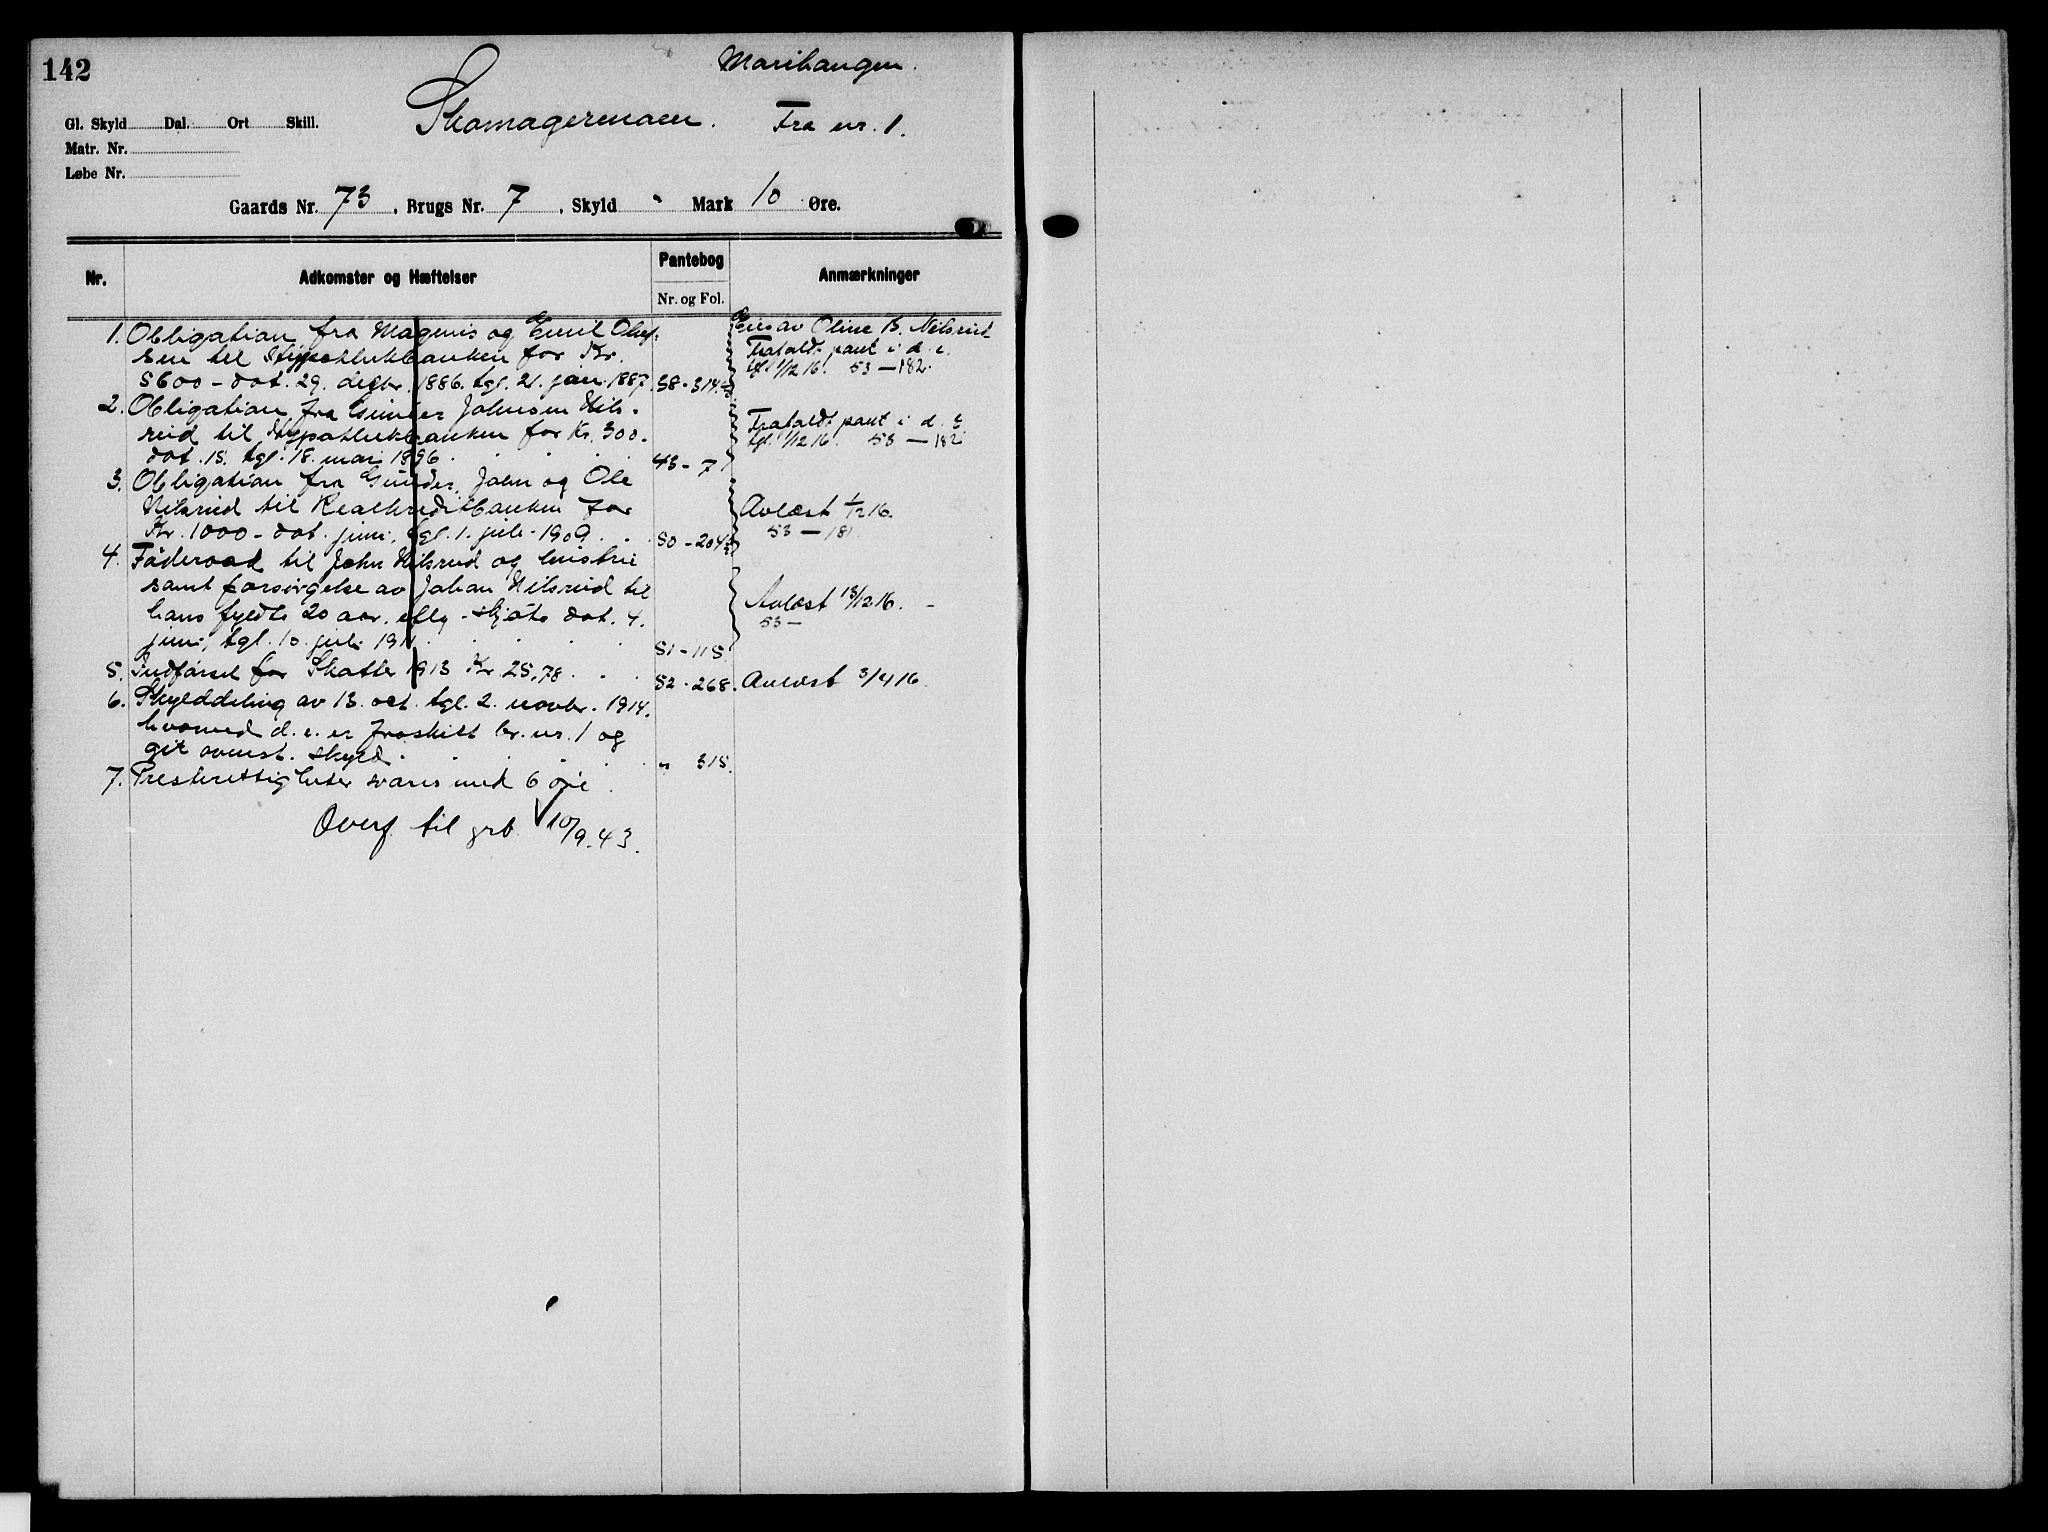 142
Marihaugen.
Skomagermoen. Fra nr. 1.
Gl. Skyld Dal. Ort Skill.
Matr. Nr.
Løbe Nr.
Gaards Nr. 73, Brugs Nr. 7, Skyld " Mark 10 Øre.
Nr. Adkomster og Hæftelser Pantebog Anmærkninger
Nr. og Fol.
Eies av Oline B. Nilsrud
1. Obligation fra Magnus og Emil Oluf-
sen til Hypothekbanken for Kr.
5600 - dat. 29. decbr. 1886. tgl. 21. jan. 1887. 38 - 314.
Frafaldt pant i d. e.
tgl. 1/12 16. 53 — 182.
2. Obligation fra Gunder Johnsen Nils-
rud til Hypothekbanken for Kr. 300.
dat. 15. tgl. 18. mai 1896. 43 - 7
Frafaldt pant i d. E.
tgl. 1/12 16. 53 — 182
3. Obligation fra Gunder, John og Ole
Nilsrud til Realkreditbanken for
Kr. 1000 - dat. juni, tgl. 1. juli - 1909. 50 - 204
Avlæst 1/12 16.
53 — 181
4. Føderaad til John Nilsrud og hustru
samt forsørgelse av Johan Nilsrud til
hans fyldte 20 aar. eflg. skjøte dat. 4.
juni, tgl. 10. juli 1911. 51 - 115
Avlæst 13/12 16.
53 —
5. Indførsel for Skatter 1913 Kr. 25,78. 52 - 268. Avlæst 3/4 16.
6. Skylddeling av 13. oct. tgl. 2. novbr. 1914.
hvorved d. e. er fraskilt br. nr. 1 og
git ovenst. skyld. " 315.
7. Presterettigheter svares med 6 øre.
Overf. til grb. V 10/9.43.